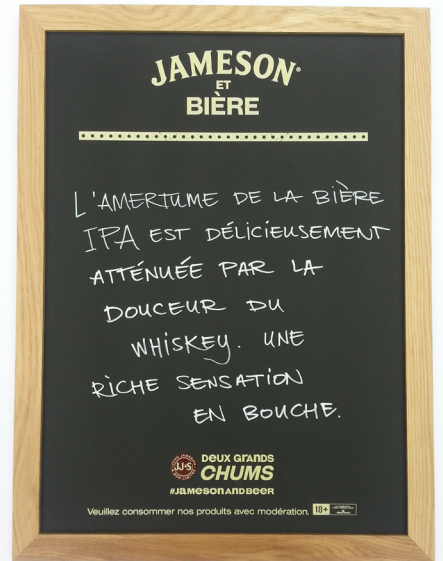 JAMESON®
ET
BIÈRE
L'AMERTUME DE LA BIÈRE
IPA EST DÉLICIEUSEMENT
ATTÉNUÉE PAR LA
DOUCEUR DU
WHISKEY. UNE
RICHE SENSATION
EN BOUCHE.
JJ&S
DEUX GRANDS
CHUMS
#JAMESONANDBEER
Veuillez consommer nos produits avec modération. 18+